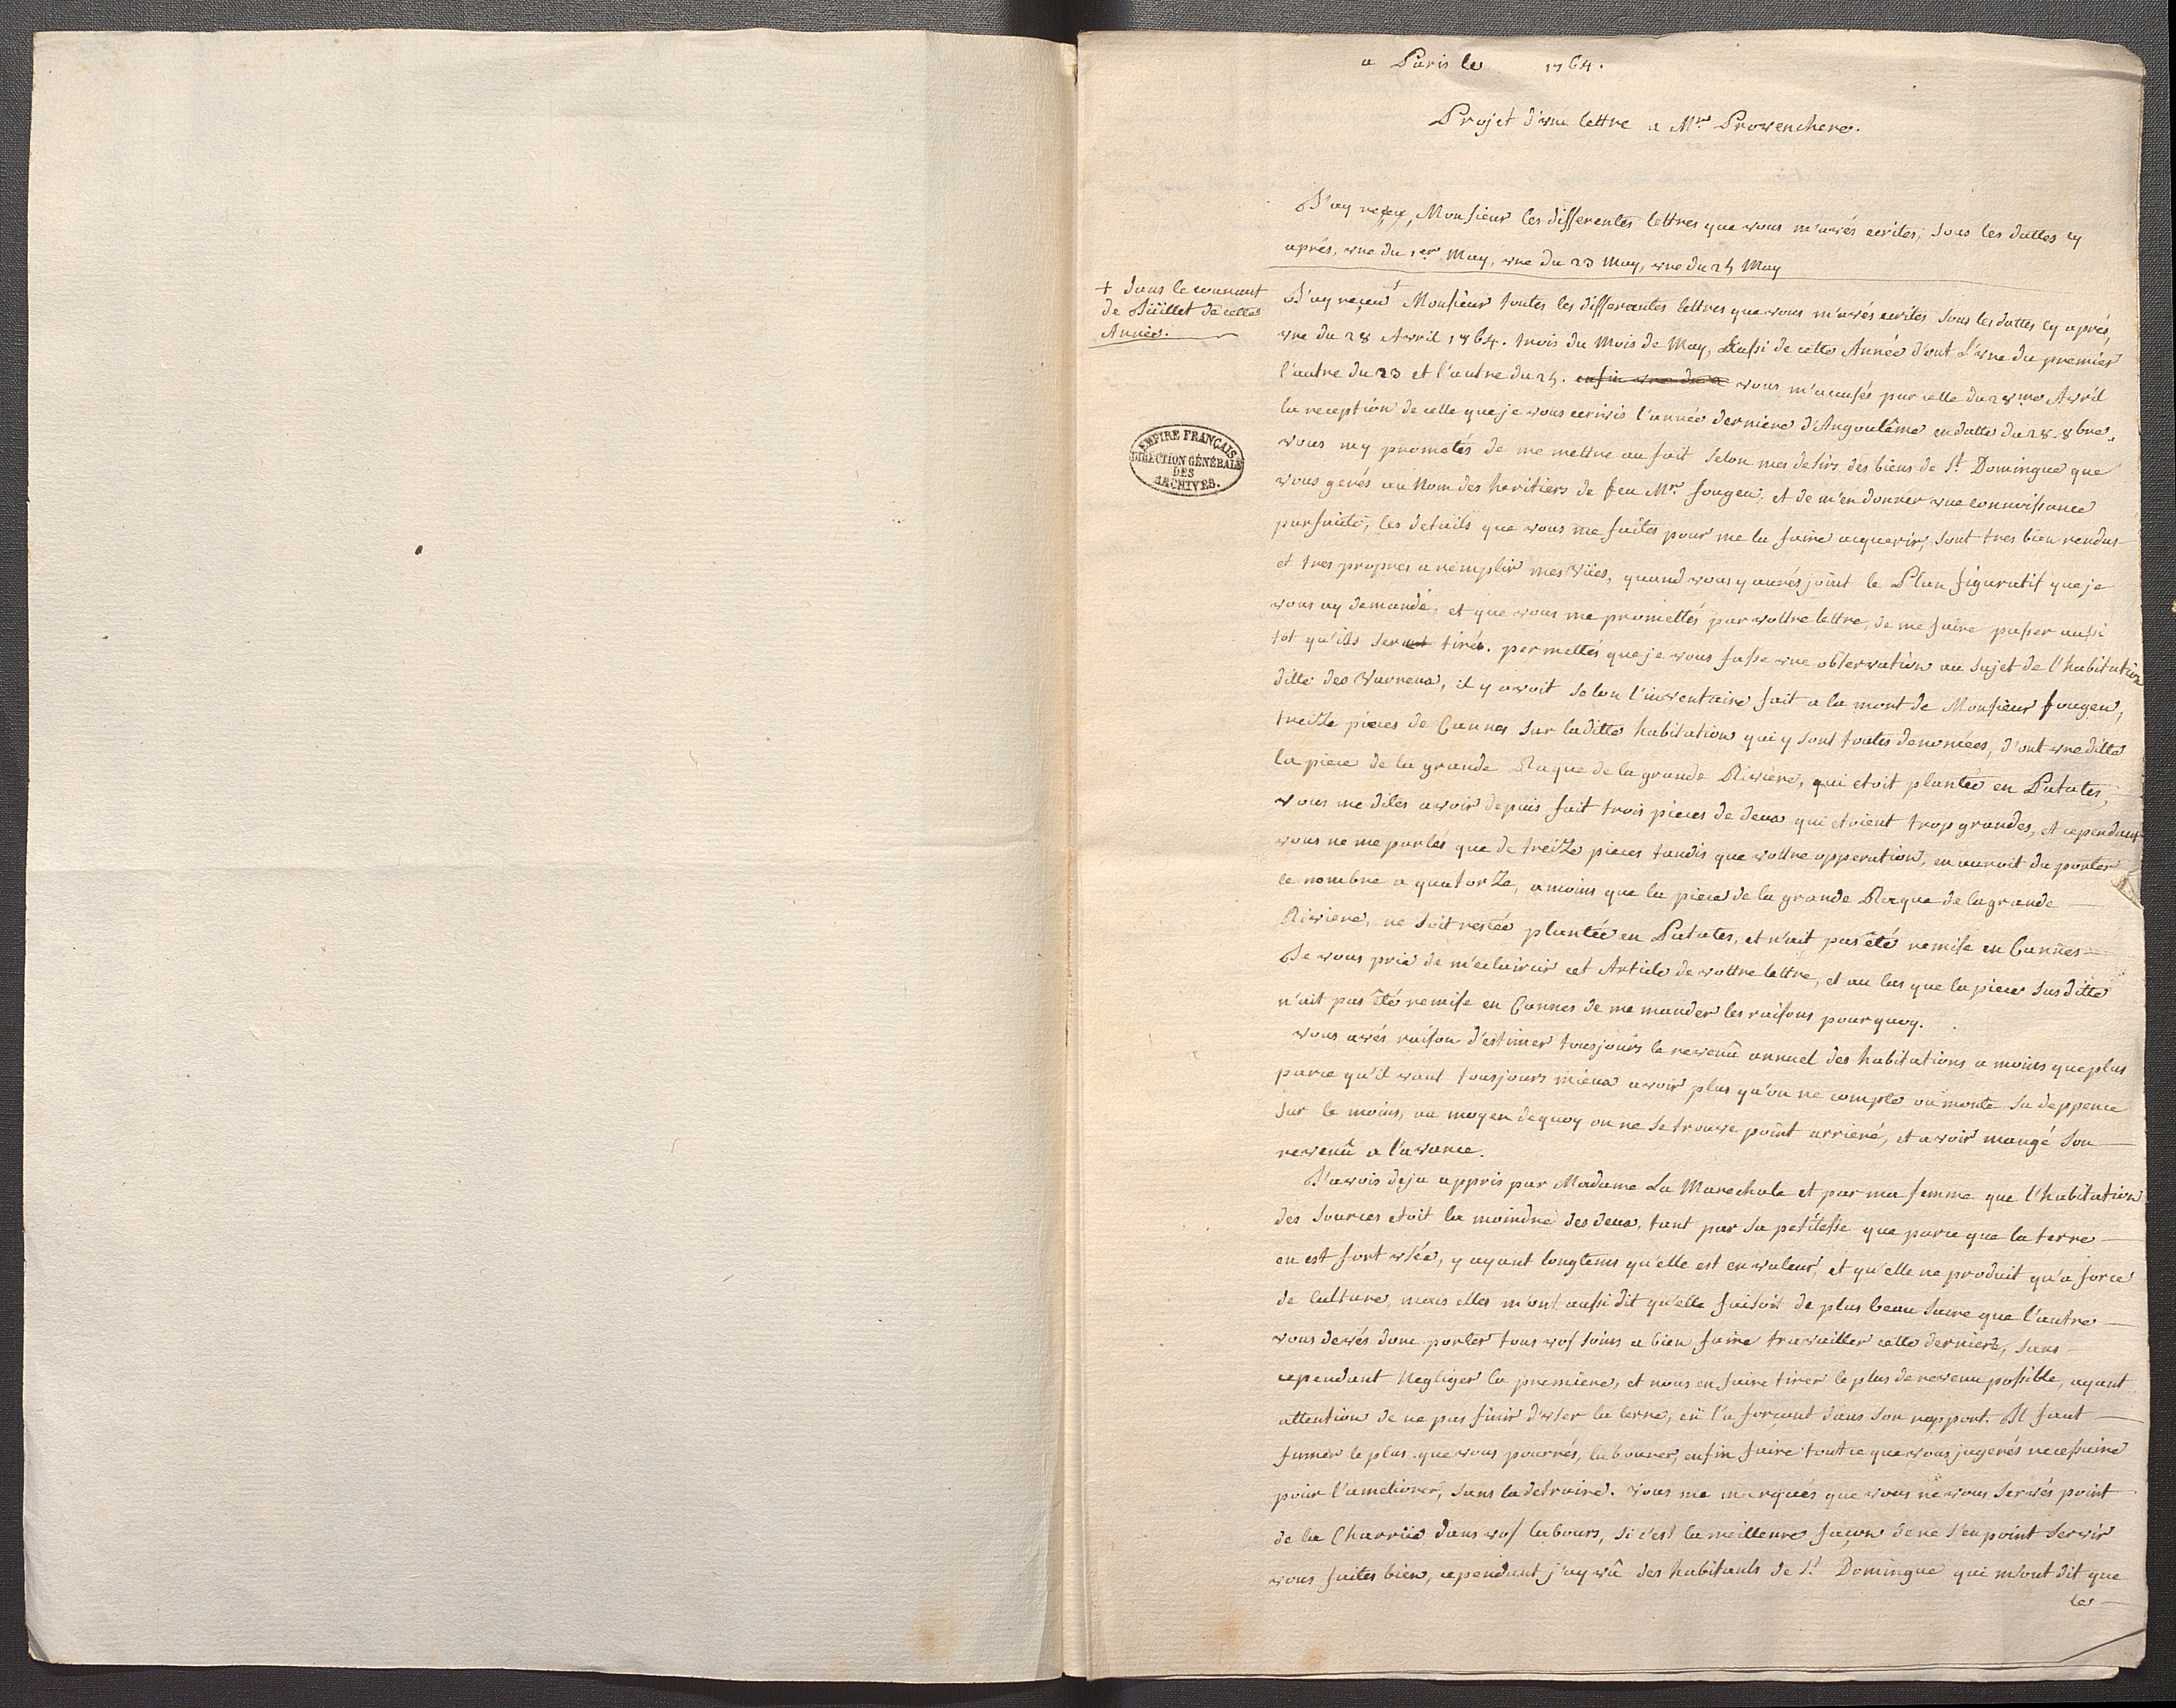 a Paris le 1764.
Projet d'vne lettre a Mr. Provenchere.
J'ay reçeu, Monsieur les differentes lettres que vous m'avés ecrites, sous les dattes cy
aprés, vne du 1er May, vne du 23 May, vne du 25 May
+ dans le courant
de Jüillet de cette
Année.
J'ay reçeu + Monsieur toutes les differantes lettres que vous m'avés ecrites sous les dattes cy aprés,
vne du 28 Avril 1764. trois du Mois de May, Aussi de cette Année d'ont L'vne du premier
l'autre du 23 et l'autre du 25. enfin vne du 2 vous m'accusés par celle du 28me Avril
la reception de celle que je vous ecrivis l'année derniere d'Angoulême en datte du 28. 8bre,
vous my prometés de me mettre au fait selon mes desirs des biens de St. Domingue que
vous gerés au Nom des heritiers de feu Mr. fougeu, et de m'en donner vne connoissance
EMPIRE FRANÇAIS
DIRECTION GÉNÉRALE
DES
ARCHIVES.
parfaite, les details que vous me faites pour me la faire acquerir, sont tres bien rendus
et tres propres a remplir mes Vües, quand vous y aurés joint le Plan figuratif que je
vous ay demandé, et que vous me promettés par vottre lettre, de me faire passer aussi
tot qu'ils seront tirés. permettés que je vous fasse vne observation au sujet de l'habitation
ditte des Varreux, il y avoit selon l'inventaire fait a la mort de Monsieur fougeu,
treitze pieces de Cannes sur laditte habitation qui y sont toutes denomées, d'ont vne ditte
la piece de la grande Raque de la grande Riviere, qui etoit plantée en Patates,
vous me dites avoir depuis fait trois pieces de deux qui etoient trop grandes, et cependant
vous ne me parlés que de treitze pieces tandis que vottre opperation, en auroit du porter
le nombre a quatorze, a moins que la piece de la grande Raque de la grande
Riviere, ne soit restée plantée en Patates, et n'ait pas été remise en Cannes
Je vous prie de m'eclaircir cet Article de vottre lettre, et au cas que la piece susditte
n'ait pas été remise en Cannes de me mander les raisons pourquoy.
vous avés raison d'estimer tousjours le revenû annuel des habitations a moins que plus
parce qu'il vaut tousjours mieux avoir plus qu'on ne compte on monte sa deppence
sur le moins, au moyen dequoy on ne se trouve point arrieré, et avoir mangé son
revenû a l'avance.
J'avois deja appris par Madame La Marechale et par ma femme que l'habitation
des Sources etoit la moindre des deux, tant par sa petitesse que parce que la terre
en est fort vsée, y ayant longtems qu'elle est en valeur, et qu'elle ne produit qu'a force
de culture, mais elles m'ont aussi dit qu'elle faisoit de plus beau sucre que l'autre
vous devés donc porter tous vos soins a bien faire travailler cette derniere, sans
cependant Negliger la premiere, et nous en faire tirer le plus de revenu possible, ayant
attention de ne pas finir d'vser la terre, en l'a forçant dans son rapport. Il faut
fumer le plus que vous pourrés, labourer, enfin faire tout ce que vous jugerés necessaire
pour l'ameliorer, sans la detruire. Vous me marqués que vous ne vous servés point
de la Charrüe dans vos labours, si c'est la meilleure façon de ne s'en point servir
vous faites bien, cependant j'ay vû des habitants de St. Domingue qui m'ont dit que
les